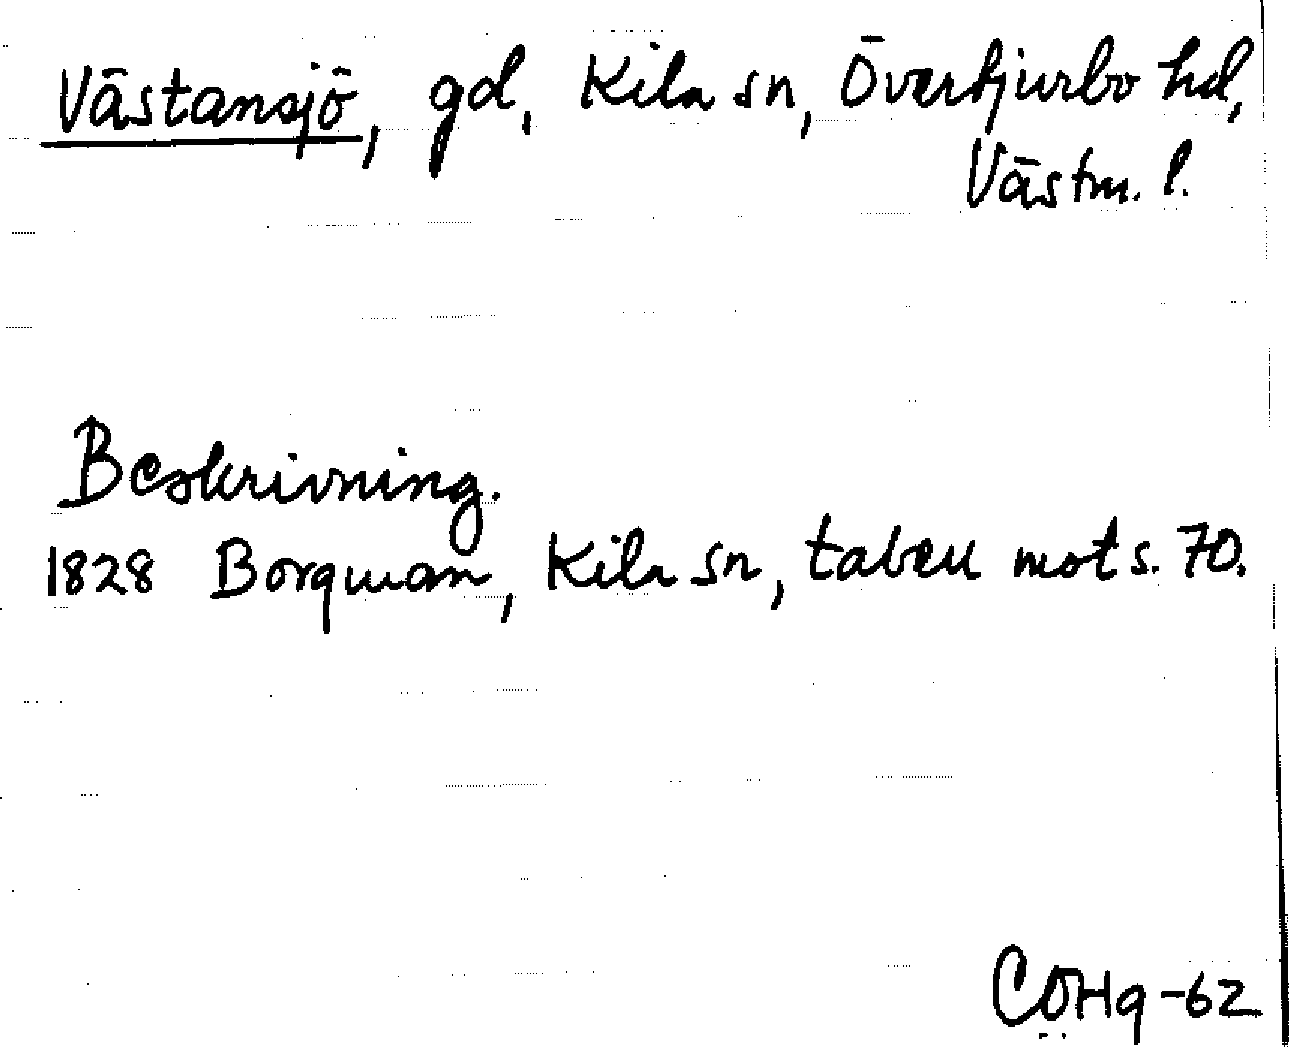 Västansjö, gd, Kila sn, Övertjurbo hd,
Västm. l.
Beskrivning.
1828 Borgman, Kila sn, tabell mot s. 70.
COHg-62